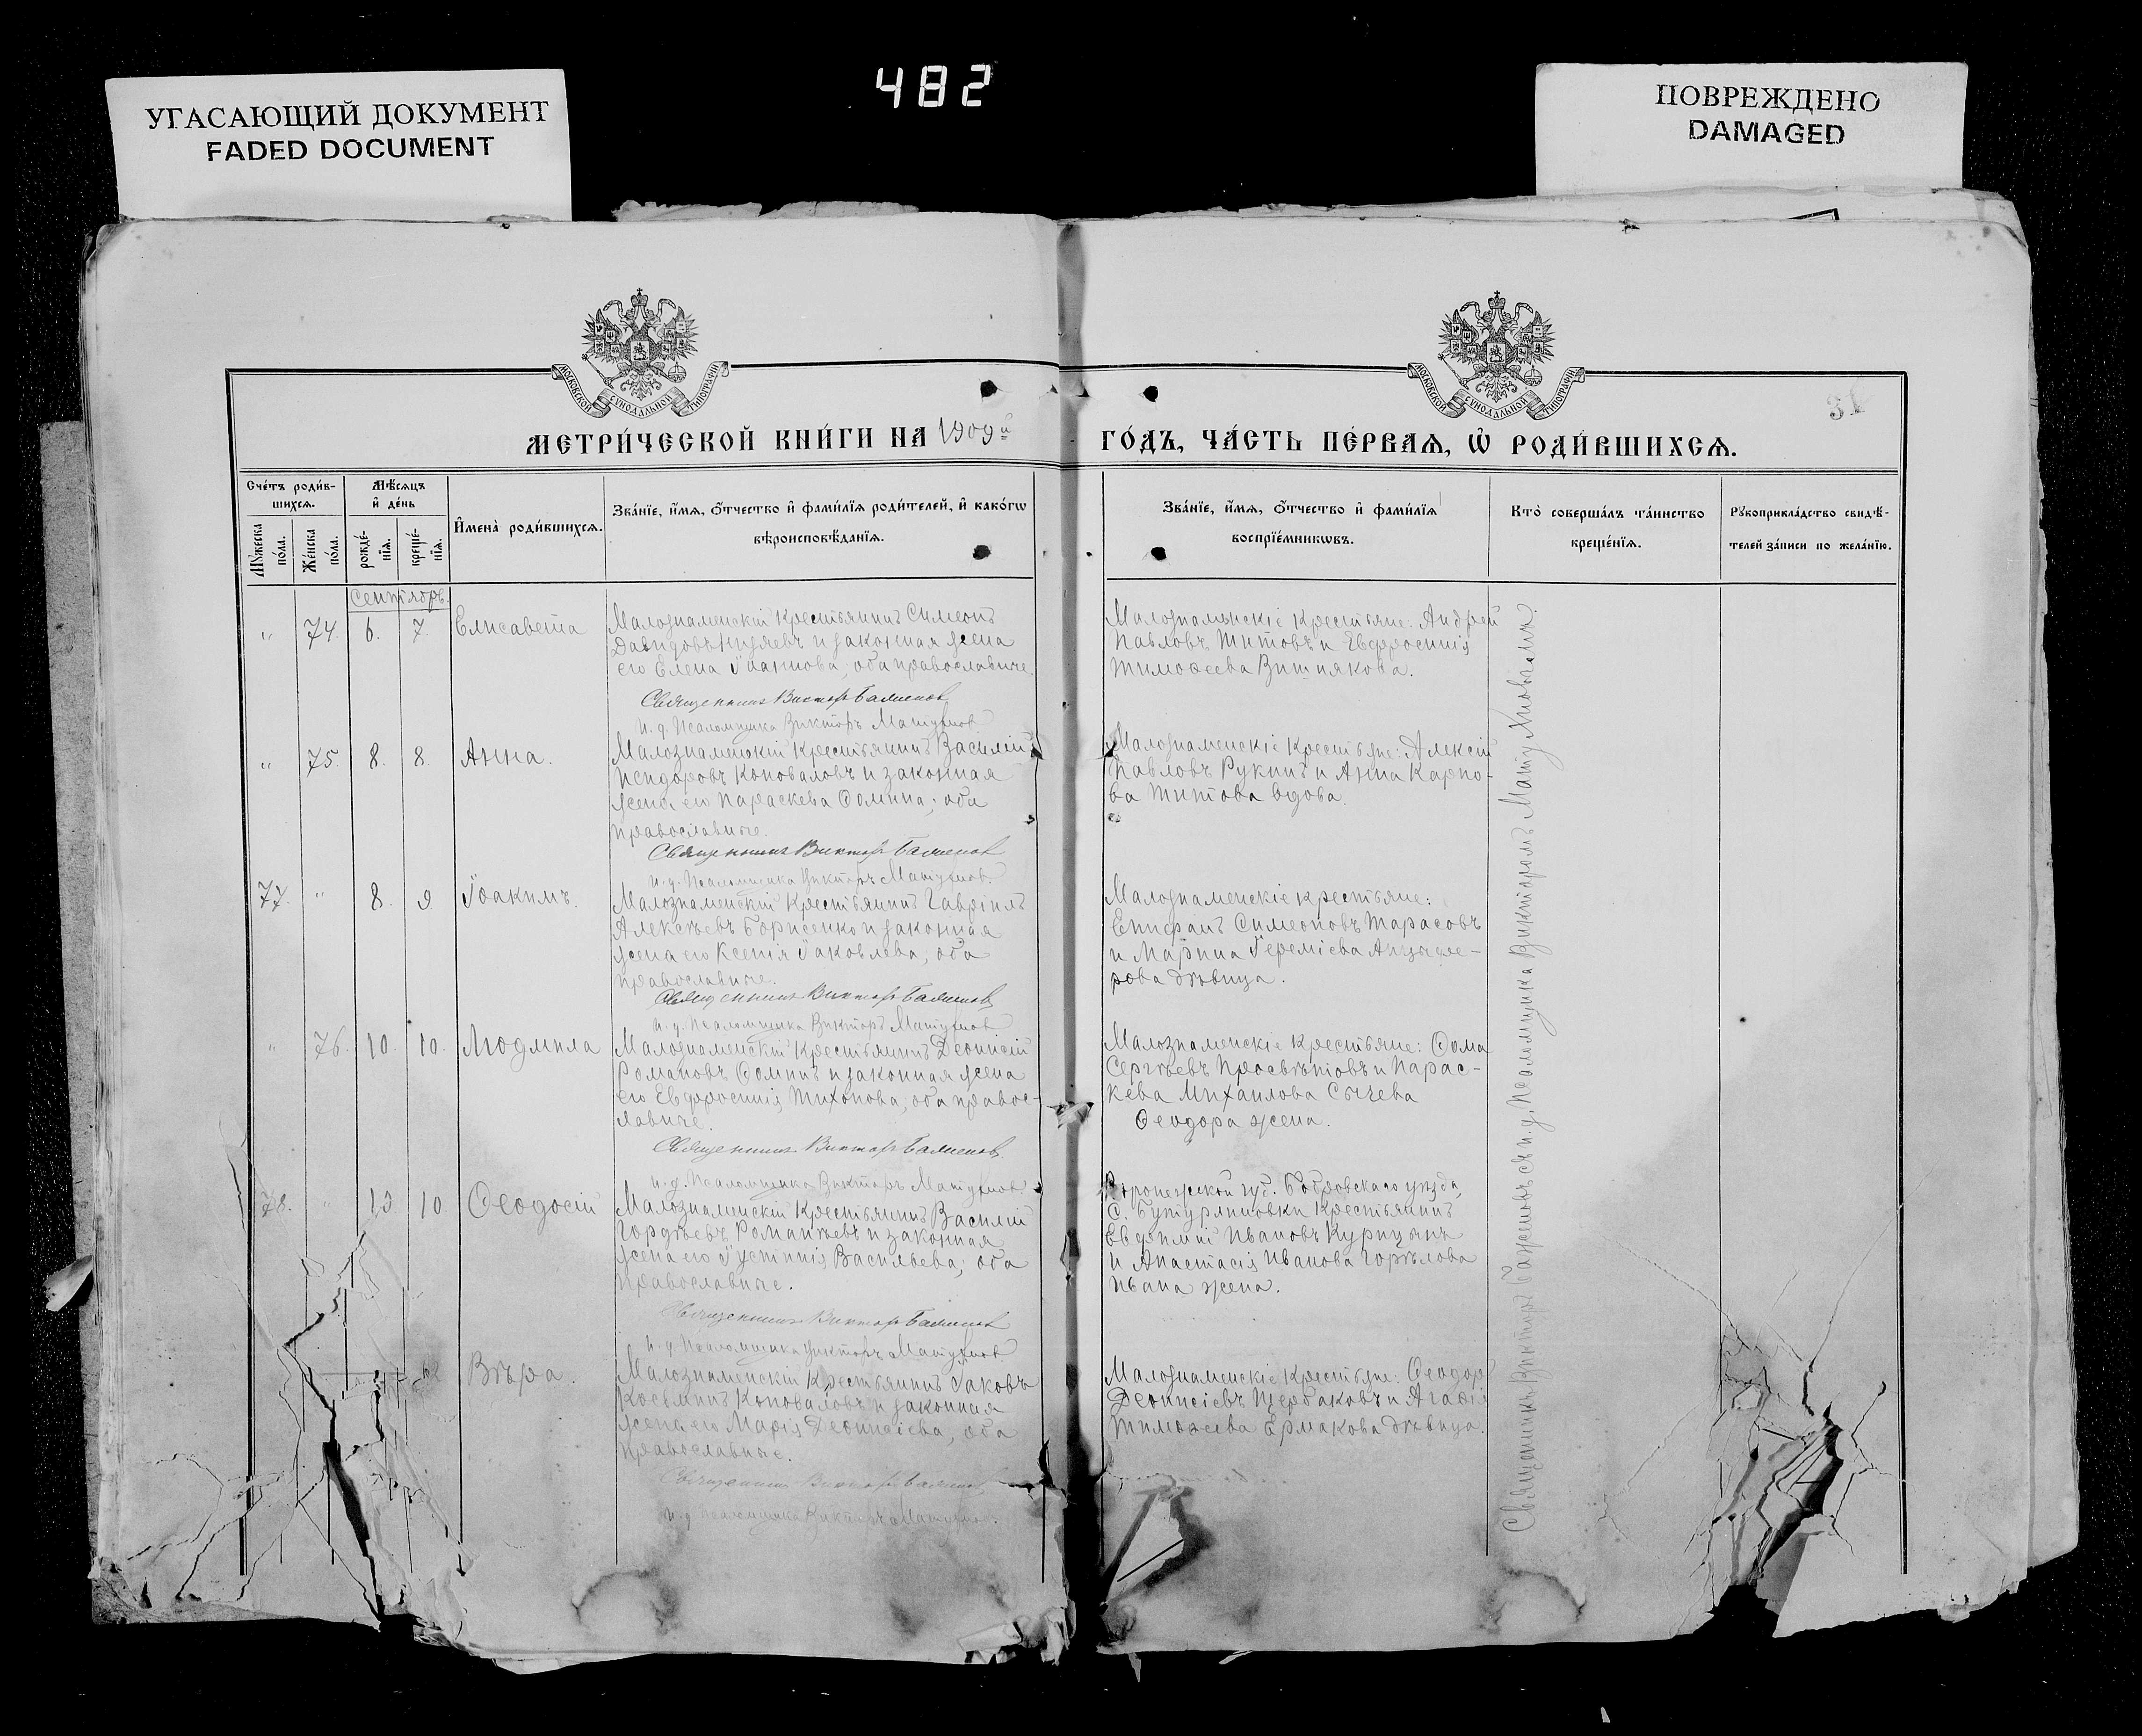 УГАСАЮЩИЙ ДОКУМЕНТ
FADED DOCUMENT
482
ПОВРЕЖДЕНО
DAMAGED
МОСКОВСКОЙ СѴНОДАЛЬНОЙ ТИПОГРАФІИ
МОСКОВСКОЙ СѴНОДАЛЬНОЙ ТИПОГРАФІИ
МЕТРИ́ЧЕСКОЙ КНИ́ГИ НА 1909й
ГО́ДЪ, ЧА́СТЬ ПЕ́РВАѦ, Ѡ҆ РОДИ́ВШИХСѦ.
Сче́тъ роди́в-
шихсѧ.
Мꙋ́жеска
по́ла.
Же́нска
по́ла.
Мѣ́сѧцъ
и҆ де́нь
рожде́-
нїѧ.
креще́-
нїѧ.
И҆мена̀ роди́вшихсѧ.
Зва́нїе, и҆́мѧ, ѻ҆́тчество и҆ фами́лїѧ роди́телей, и҆ како́гѡ
вѣроисповѣ́данїѧ.
Зва́нїе, и҆́мѧ, ѻ҆́тчество и҆ фами́лїѧ
воспрїе́мникѡвъ.
Кто̀ соверша́лъ та́инство
креще́нїѧ.
Рꙋкоприкла́дство свидѣ́-
телей за́писи по жела́нїю.
Сентябрь.
" 74. 6. 7. Елисавета
Малознаменскій крестьянинъ Симеонъ
Давидовъ и законная жена
его Елена Іоаннова, оба православные
Священникъ Викторъ Баженовъ
и. д. Псаломщика Викторъ
Малознаменскіе крестьяне: Андрей
Павловъ Титовъ и Евфросинія
Тимоѳеева Вишнякова.
" 75. 8. 8. Анна.
Малознаменскій крестьянинъ Василій
Исидоровъ Коноваловъ и законная
жена его Параскева Ѳомина; оба
православные.
Священникъ Викторъ Баженовъ
и. д. Псаломщика Викторъ
Малознаменскіе крестьяне: Алексій
Павловъ Рукинъ и Анна Карпо-
ва Титова вдова.
77. " 8. 9 Іоакимъ.
Малознаменскій крестьянинъ Гавріилъ
Алексѣевъ Борисенко и законная
жена его Ксенія Іаковлева; оба
православные.
Священникъ Викторъ Баженовъ
и. д. Псаломщика Викторъ
Малознаменскіе крестьяне:
Епифанъ Симеоновъ Тарасовъ
и Марина Іереміева
рова дѣвица.
" 76. 10. 10. Людмила
Малознаменскій крестьянинъ Діонисій
Романовъ Ѳоминъ и законная жена
его Евфросинія Тихонова, оба правос-
лавные.
Священникъ Викторъ Баженовъ
и. д. Псаломщика Викторъ
Малознаменскіе крестьяне: Ѳома
Сергѣевъ Просвѣтовъ и Парас-
кева Михаилова Сычева
Ѳеодора жена.
78. " 10 10 Ѳеодосій
Малознаменскій крестьянинъ Василій
Гордѣевъ Романѣевъ и законная
жена его Іустинія Васильева; оба
православные.
Священникъ Викторъ Баженовъ
и. д. Псаломщика Викторъ
Воронежской губ. Бобровскаго уѣзда,
с. Бутурлиновки крестьянинъ
Евфимій Ивановъ Курицынъ
и Анастасія Иванова Горѣлова
Ивана жена.
Вѣра.
Малознаменскій крестьянинъ Іаковъ
Косьминъ Коноваловъ и законная
жена его Марія Діонисіева, оба
православные.
Священникъ Викторъ Баженовъ
и. д. Псаломщика Викторъ
Малознаменскіе крестьяне: Ѳеодоръ
Діонисіевъ Щербаковъ и Агафія
Тимоѳеева Ермакова дѣвица.
Священникъ Викторъ Баженовъ съ и. д. Псаломщика Викторомъ